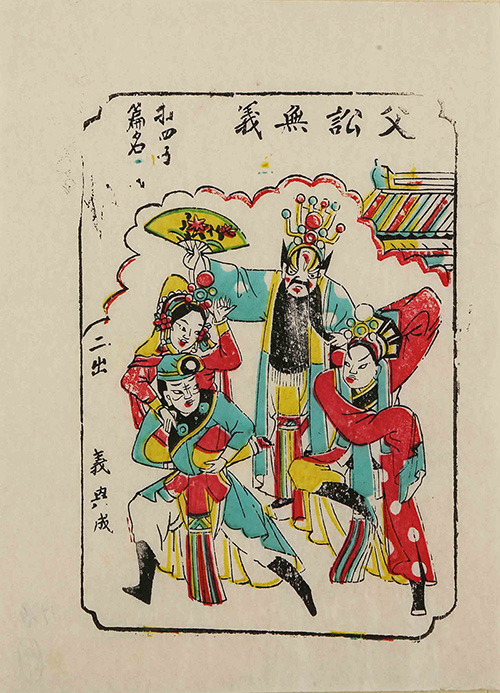 父訟無義
四
篇名
二出
義興成